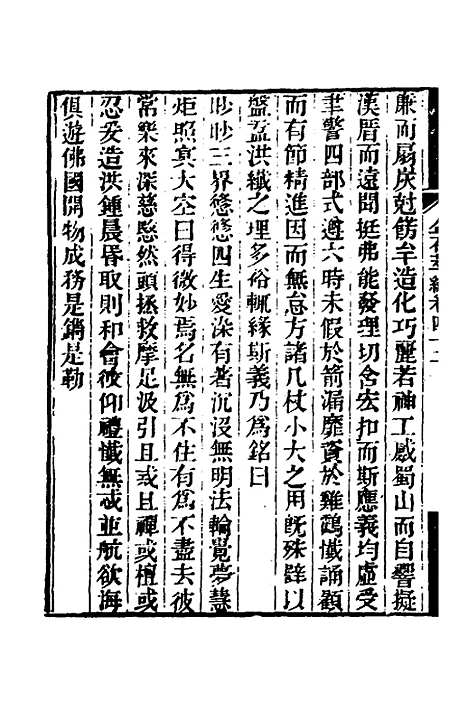 廉而扇炭尅鎊牟造化巧麗若神工感蜀山而自響擬
漢厝而遠聞挺弗能發理切舍宏扣而斯應義均虛受
聿警四部式遵六時未假於箭漏靡資於雞鶴懺誦顧
而有節精進因而無怠方諸几杖小大之用旣殊辟以
盤盂洪纖之理多俗輒緣斯義乃爲銘曰
眇眇三界悠悠四生愛深有著沉沒無明法輪覺夢慧
炬照冥大空曰得微妙焉名無爲不住有爲不盡去彼
常樂來深慈愍然頭拯救摩足汲引且或且禪或檀或
忍爰造洪鍾晨昏取則和會彼仰禮懺無忒並航欲海
俱遊佛國開物成務是鐫是勒